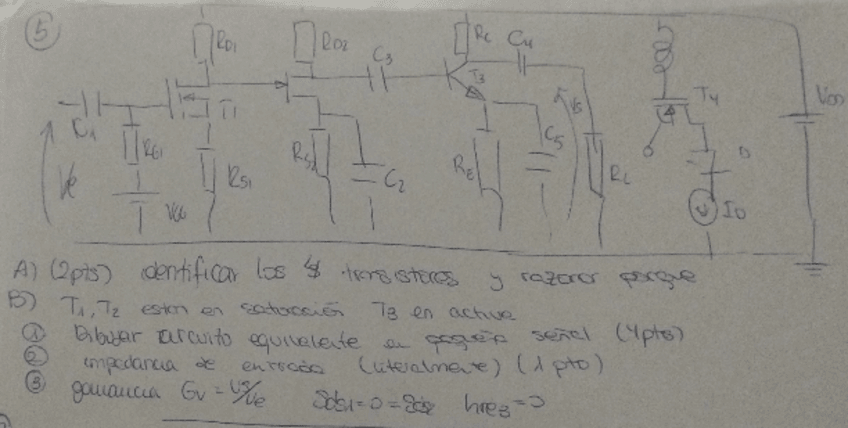 5
RD1 RD2 C3 RC C4
T1 T3 T4 VDD
C1 RG1 RS1 RS2 C2 RE C5 VS RL ID
Ve VGG
A) (2pts) identificar los 4 transistores y razonar porque
B) T1, T2 estan en saturación T3 en activa
① Dibujar circuito equivalente en pequeña señal (4pts)
② impedancia de entrada (literalmente) (1 pto)
③ ganancia Gv = Vs/Ve gds1=0=gds2 hre3=0